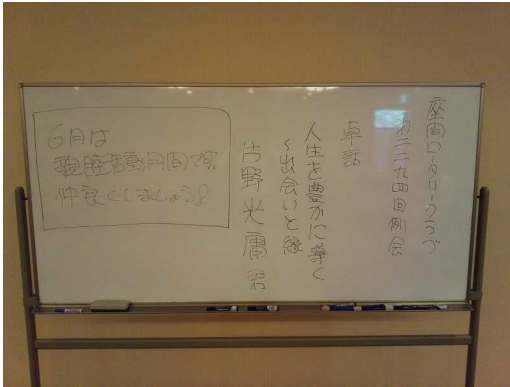 座間ロータリークラブ
第二二九四回例会
卓話
人生を豊かに導く
〜出会いと縁
古野光庸君
6月は
親睦活動月間です。
仲良くしましょう!